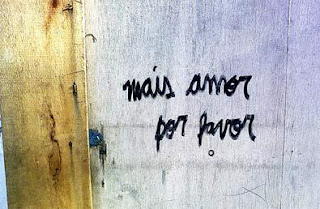 mais amor
por favor